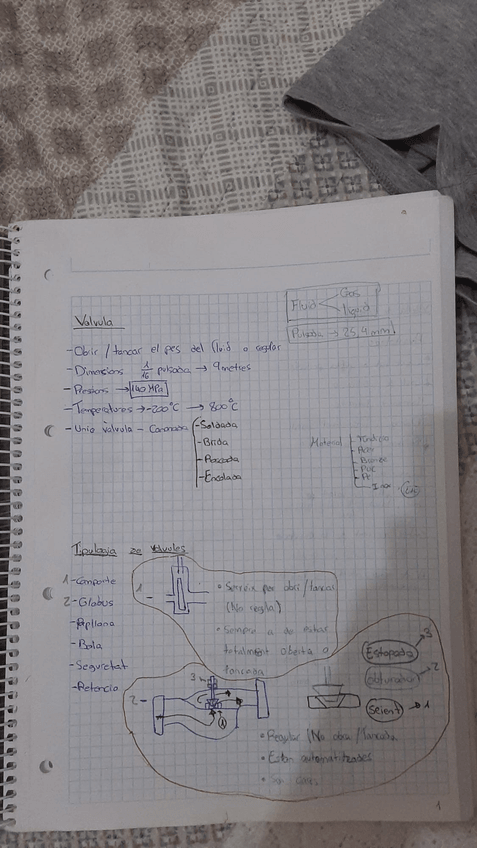 Valvula
Fluid
Gas
liquid
Pulsada → 25,4 mm
- Obrir / tancar el pas del fluid o regular
- Dimensions 1/16 pulsada → 9 metres
- Pressions → 140 MPa
- Temperatures → -200°C → 800°C
- Unio valvula - Canonada
- Soldada
- Brida
- Roscada
- Encolada
Material
- Acer
- Bronze
- PVC
- Inox
Tipologia de valvules
1 - Comporta
2 - Globus
- Papallona
- Bola
- Seguretat
- Retencio
1 -
• Servir per obrir / tancar
(No regla)
• Sempre a de estar
totalment oberta o
tancada
2 -
3
1
Estopada → 3
obturador → 2
Seient → 1
• Regular (No obra / tancada
• Estan automatitzades
1